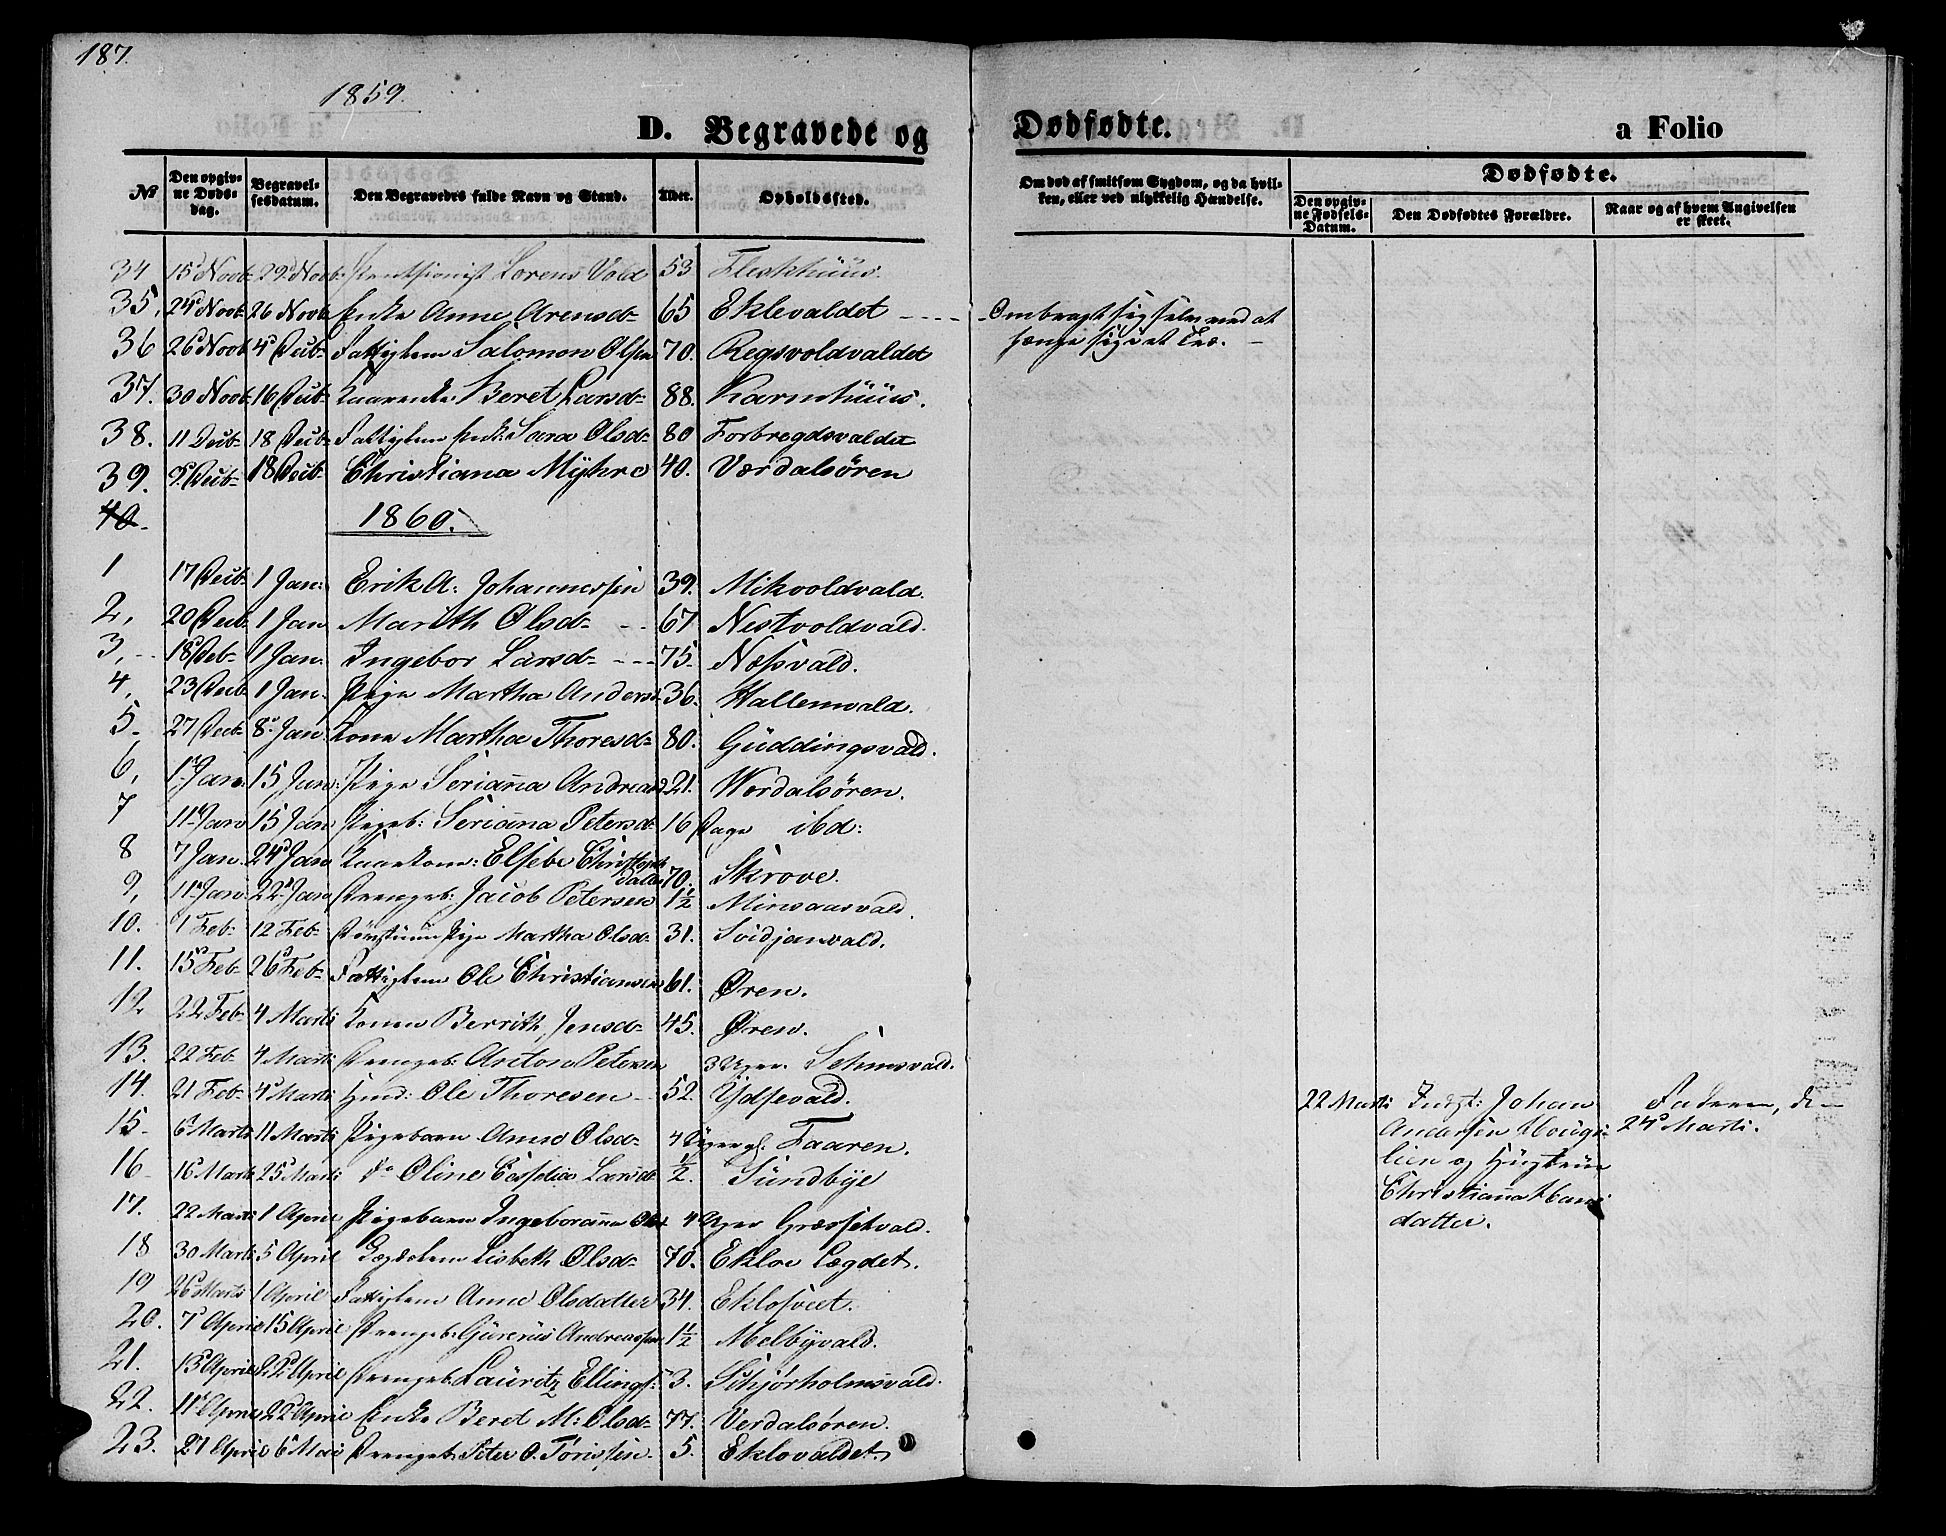 187.
1859.
D. Begravede og Dødfødte. a Folio
№ Den opgivne Døds-dag. Begravelsesdatum. Den Begravedes fulde Navn og Stand. Alder. Opholdssted. Om død af smitsom Sygdom, og da hvilken, eller ved ulykkelig Hændelse. Dødfødte.
Den opgivne Fødsels-Datum. Den Dødfødtes Forældre. Naar og af hvem Angivelsen er skeet.
34 15 Novb. 29 Novb. Lorens Vold 53
35, 24 Novb 26 Novb Enke Anne Arensd. 65 Eklevaldet - Ombragt sig selv ved at
36 26 Novb 4 Decb. Fattiglem Salomon Olsen 70. hænge sig i et Træ.
37. 30 Novb. 16 Decb. Kaarenke Beret Larsd. 88.
38. 11 Decb. 18 Decb. Fattiglem Enke Sara Olsd. 80 Forbregdsvaldet
39. 9 Decb. 18 Decb. Christiana Myhre 40. Værdalsøren
40.
1860.
1 17 Decb. 1 Jan. Erik A. Johannessen 39. Mikvoldvald.
2, 20 Decb. 1 Jan Marith Olsd. 67 Nestvoldvald.
3, 18 Deb. 1 Jan. Ingebor Larsd. 75. Næssvald.
4, 23 Decb 1 Jan. Pige Martha Andersd. 36. Hallemvald.
5. 27 Decb. 8 Jan. Kone Martha Thoresd. 80. Guddingsvald.
6, 1 Jan. 15 Jan. Pige Serianna Andreasd 21. Werdalsøren.
7 11 Jan 15 Jan Pigeb: Serianna Petersd. 16 Dage ibd:
8 7 Jan. 24 Jan Kaarkone: Elsebe Christophdatter 70. Skrove.
9, 11 Jan. 22 Jan Drengeb: Jacob Petersen 1½ Minsaasvald.
10. 1 Feb. 12 Feb. Pige Martha Olsd. 31. Svidjanvald.
11. 15 Feb. 26 Feb. Fattiglem Ole Christiansen 61. Øren.
12 22 Feb. 4 Marti Konen Berrith Jensd. 45. Øren.
13. 22 Feb. 4 Marti Drengeb: Anton Petersen 3 Uger.
14. 21 Feb. 4 Marti Huusd: Ole Thoresen 52. Ydsevald. 22 Marti Indst: Johan Andersen Hougslien og Hustrue Christianna Hansdatter. Faderen, d. 24 Marti.
15. 6 Marti 11 Marti Pigebarn Olsd. 4 Uger gl. Faaren.
16. 16 Marti 25 Marti do Oline Larsd. ½. Sundbye
17. 22 Marti 1 April Pigebarn Ingeboranna 4 Uger
18 30 Marti 5 April Lægdslem Lisbeth Olsd. 70. Ekloe Lægdet.
19 26 Marti 1 April Fattiglem Anne Olsdatter 34.
20. 7 April 15 April Drengeb: Andreassen 1½ Melbyvald.
21. 13 April 22 April Drengeb. Lauritz Ellings: 3. Schjørholmsvald.
22. 11 April 22 April Enke Beret M: Olsd. 77. Verdalsøren.
23. 27 April 6 Mai Drengeb. Peter O. 5. Eklovaldet.